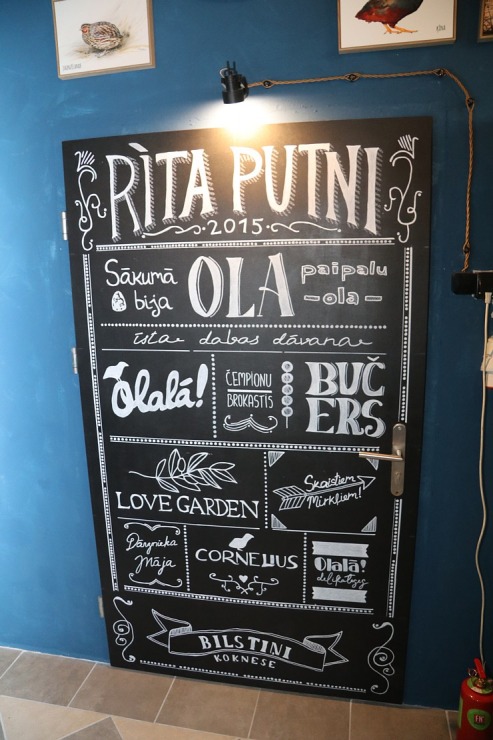 RÌTA PUTNI
2015.
Sākumā
bija
OLA
paipalu
-ola-
īsta dabas dāvana
Olalā!
ČEMPIONU
BROKASTIS
BUČ
ERS
LOVE GARDEN
Skaistiem
Mirkļiem!
Dārznieka
Māja
CORNELIUS
Olalā!
BILSTIŅI
KOKNESE